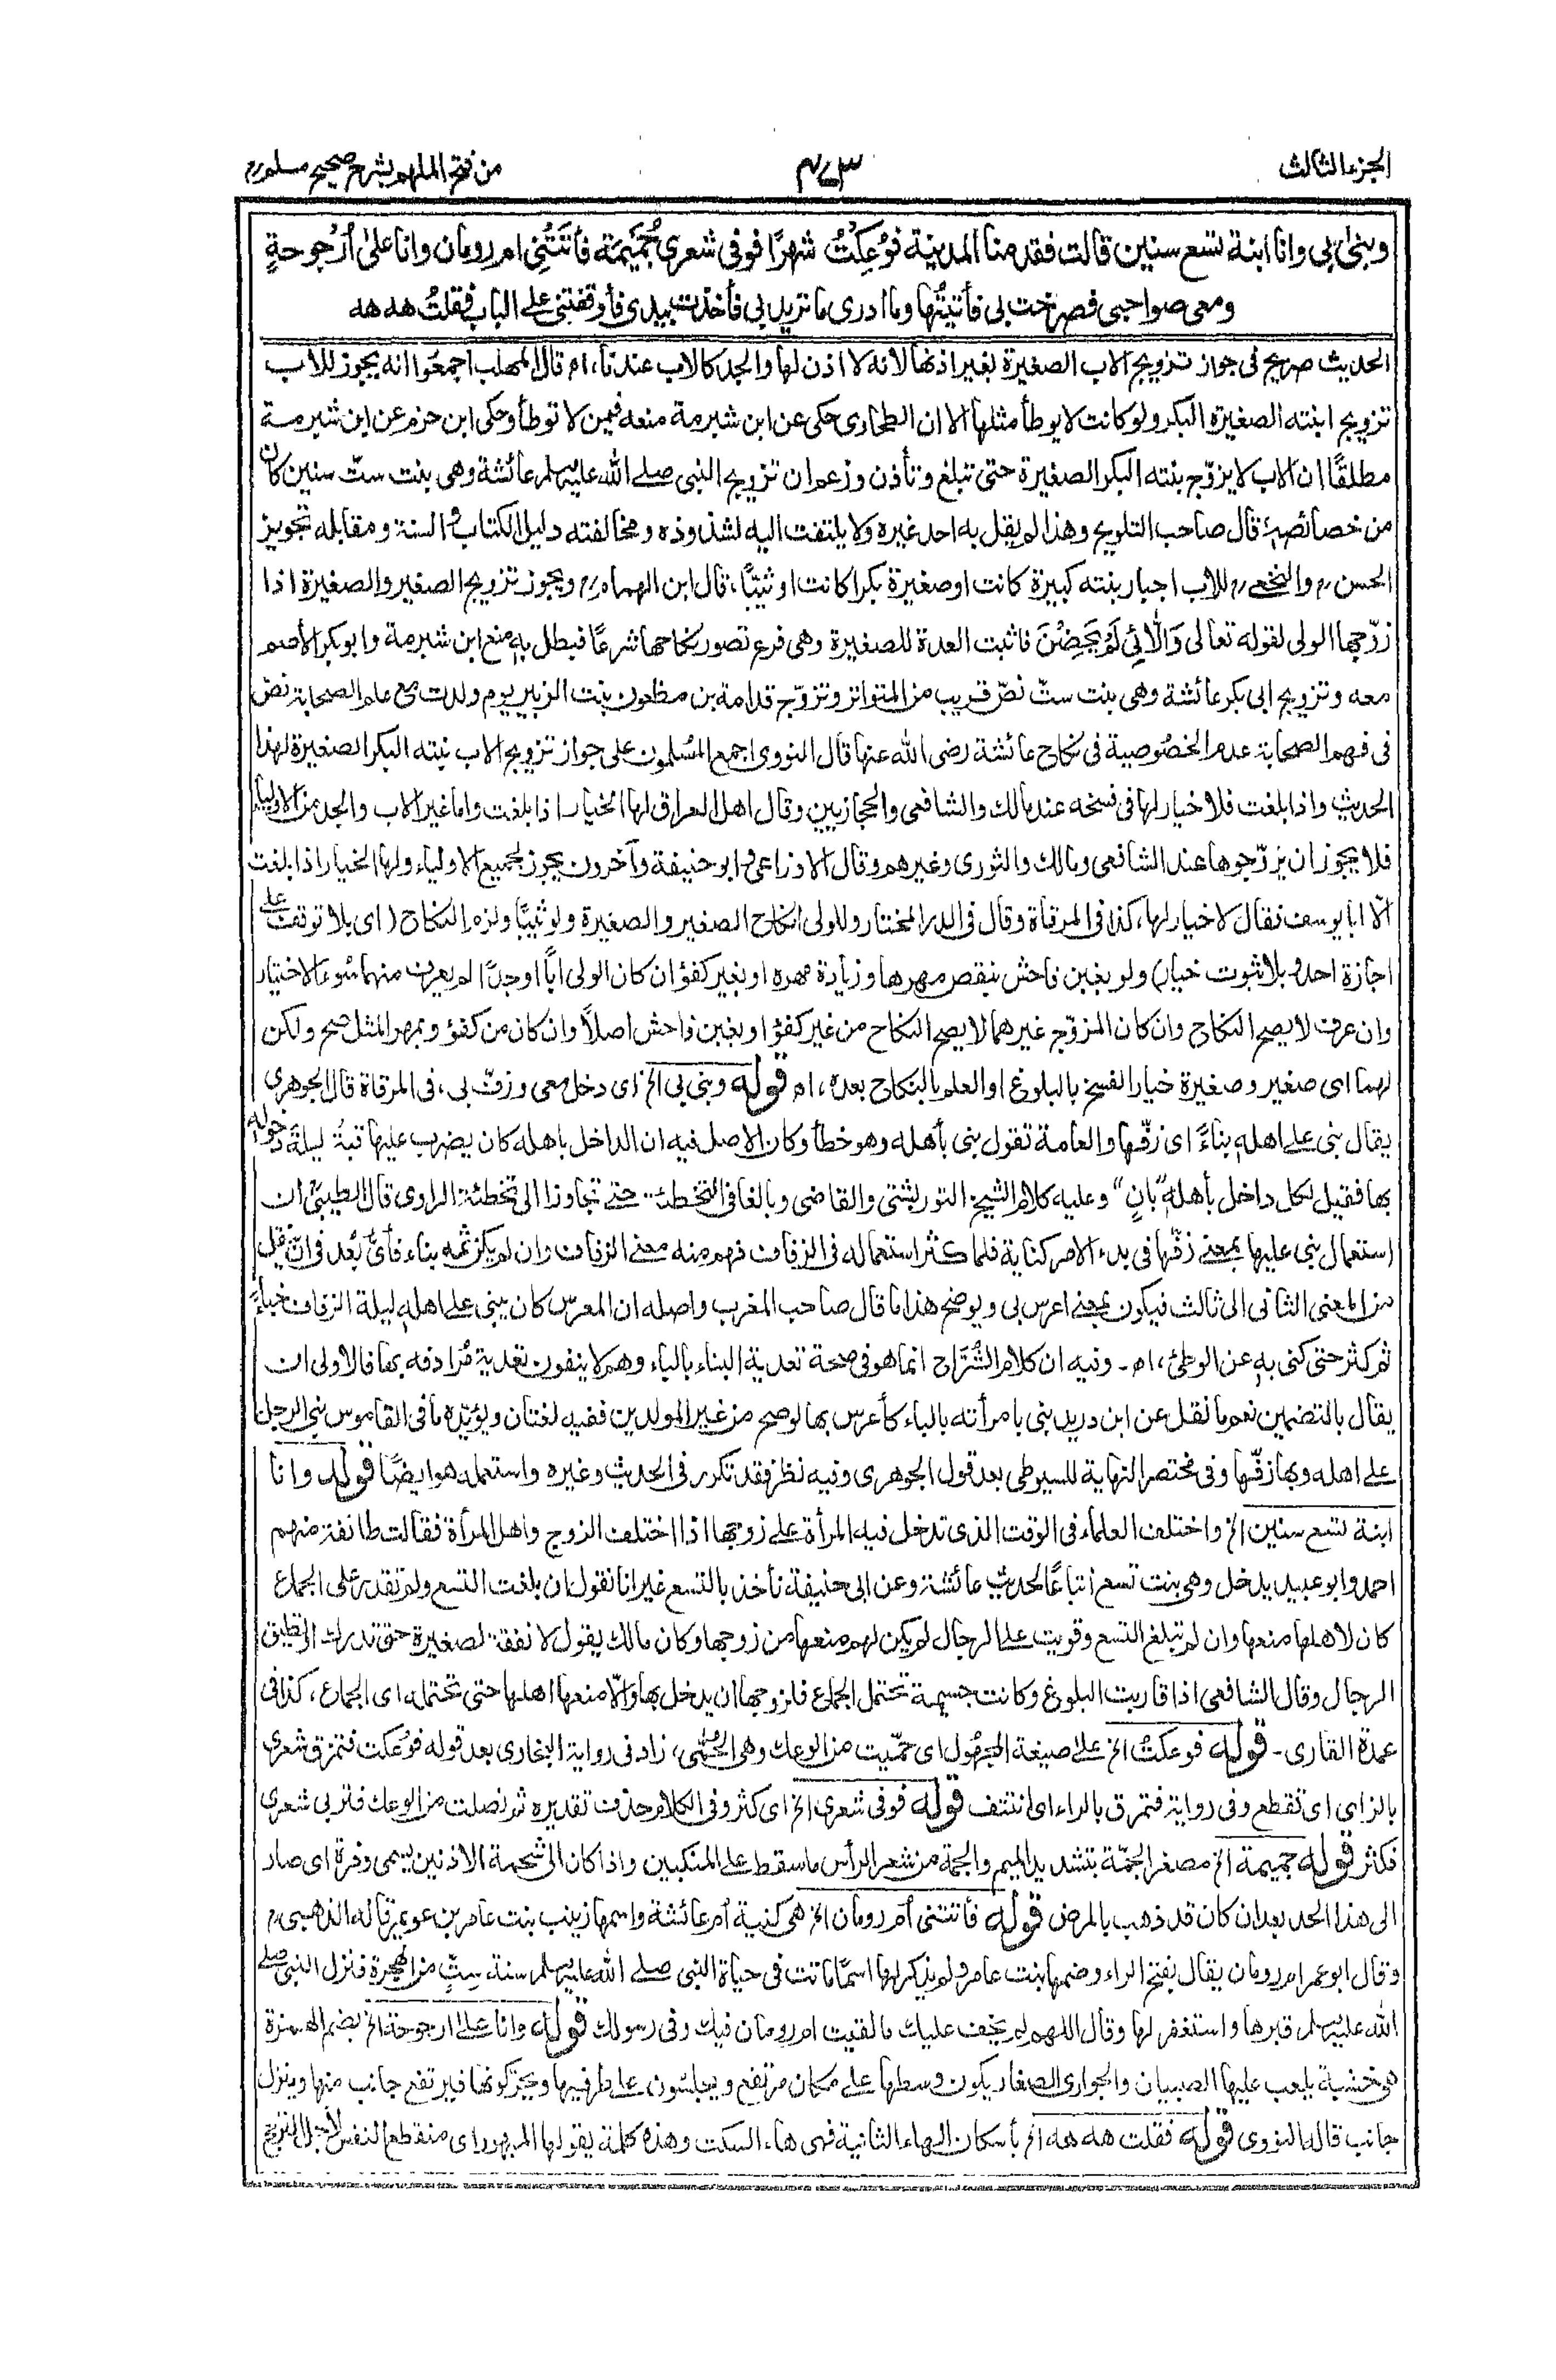 الجزء الثالث
٤٧٣
من فتح الملهم بشرح صحيح مسلم
وبنى بي وانا ابنة تسع سنين قالت فقدمنا المدينة فَوُعِكْتُ شهرًا فوفى شعري جُمَيْمَة فأتَتْنِي ام رومان وانا على أُرْجُوحةٍ
ومعي صواحبي فصرخت بي فأتيتُها وما ادري ما تريد بي فأخذت بيدي فأوقفتني على الباب فقلتُ هه هه
الحديث صريح فى جواز تزويج الاب الصغيرة بغير اذنها لأنه لا اذن لها والجد كالاب عندنا، اه قال المهلب اجمعوا انه يجوز للأب
تزويج ابنته الصغيرة البكر ولو كانت لا يوطأ مثلها الا ان الطحاوى حكى عن ابن شبرمة منعه فيمن لا توطأ وحكى ابن حزم عن ابن شبرمة
مطلقًا ان الاب لا يزوّج بنته البكر الصغيرة حتى تبلغ وتأذن وزعم ان تزويج النبى صلے الله عليه وسلم عائشة وهى بنت ستّ سنين كان
من خصائصه، قال صاحب التلويح وهذا لم يقل به احد غيره ولا يلتفت اليه لشذوذه ومخالفته دليل الكتاب والسنة ومقابله تجويز
الحسن والنخعے للاب اجبار بنته كبيرة كانت او صغيرة بكرا كانت او ثيّبًا، قال ابن الهمام ويجوز تزويج الصغير والصغيرة اذا
زوّجها الولى لقوله تعالى وَالّٰٓئِي لَمْ يَحِضْنَ فاثبت العدة للصغيرة وهى فرع تصور نكاحها شرعًا فبطل به منع ابن شبرمة وابو بكر الأصم
معه وتزويج ابى بكر عائشة وهى بنت ستّ نصّ قريب من المتواتر وتزوّج قدامة بن مظعون بنت الزبير يوم ولدت مع علم الصحابة نص
فى فهم الصحابة عدم الخصوصية فى نكاح عائشة رضى الله عنها قال النووى اجمع المسلمون على جواز تزويج الاب بنته البكر الصغيرة لهذا
الحديث واذا بلغت فلا خيار لها فى فسخه عند مالك والشافعى والحجازيين وقال اهل العراق لها الخيار اذا بلغت واما غير الاب والجد من الاولياء
فلا يجوز ان يزوّجوها عند الشافعى ومالك والثورى وغيرهم وقال الاوزاعى وابو حنيفة وآخرون يجوز لجميع الاولياء ولها الخيار اذا بلغت
الّا ابا يوسف فقال لا خيار لها، كذا فى المرقاة وقال فى الدر المختار وللولى انكاح الصغير والصغيرة ولو ثيّبًا ولزم النكاح (اى بلا توقف على
اجازة احد وبلا ثبوت خيار) ولو بغبن فاحش بنقص مهرها وزيادة مهره او بغير كفؤ ان كان الولى ابًا او جدًّا لم يعرف منهما سُوء الاختيار
وان عرف لا يصح النكاح وان كان المزوّج غيرهما لا يصح النكاح من غير كفؤ او بغبن فاحش اصلاً وان كان من كفؤ وبمهر المثل صح ولكن
لهما اى صغير وصغيرة خيار الفسخ بالبلوغ او العلم بالنكاح بعده، اه قوله وبنى بى الخ اى دخل معى وزفّ بى، فى المرقاة قال الجوهرى
يقال بنى على اهله بناءً اى زفّها والعامة تقول بنى بأهله وهو خطأ وكان الاصل فيه ان الداخل باهله كان يضرب عليها قبةً ليلة دخوله
بها فقيل لكل داخل بأهله "بانٍ" وعليه كلام الشيخ التوربشتى والقاضى وبالغا فى التخطئة حتى تجاوزا الى تخطئة الراوى قال الطيبى ان
استعمال بنى عليها بمعنى زفّها فى بدء الامر كناية فلما كثر استعماله فى الزفاف فهم منه معنى الزفاف وان لم يكن ثمّه بناء فأىُّ بُعد فى ان ينقل
من المعنى الثانى الى ثالث فيكون بمعنى اعرس بى ويوضح هذا ما قال صاحب المغرب واصله ان المعرس كان يبنى على اهله ليلة الزفاف خباءً
ثم كثر حتى كنى به عن الوطئ، اه۔ وفيه ان كلام الشُّرّاح انما هو فى صحة تعدية البناء بالباء وهم لا ينفون تعدية مُرادفه بها فالاولى ان
يقال بالتضمين نعم ما نقل عن ابن دريد بنى بامرأته بالباء كأعرس بها لو صح من غير المولدين ففيه لغتان ويؤيّده ما فى القاموس بنى الرجل
على اهله وبها زفّها وفى مختصر النهاية للسيوطى بعد قول الجوهرى وفيه نظر فقد تكرر فى الحديث وغيره واستعمله هو ايضًا قوله وانا
ابنة تسع سنين الخ واختلف العلماء فى الوقت الذى تدخل فيه المرأة على زوجها اذا اختلف الزوج واهل المرأة فقالت طائفة منهم
احمد وابو عبيد يدخل وهى بنت تسع اتباعًا لحديث عائشة وعن ابى حنيفة نأخذ بالتسع غير انا نقول ان بلغت التسع ولم تقدر على الجماع
كان لاهلها منعها وان لم تبلغ التسع وقويت على الرجال لم يكن لهم منعها من زوجها وكان مالك يقول لا نفقة لصغيرة حتى تدرك او تطيق
الرجال وقال الشافعى اذا قاربت البلوغ وكانت جسيمة تحتمل الجماع فلزوجها ان يدخل بها والّا منعها اهلها حتى تحتمله اى الجماع، كذا فى
عمدة القارى۔ قوله فوعكتُ الخ على صيغة المجهول اى حمّيت من الوعك وهى الحُمّى، زاد فى رواية البخارى بعد قوله فوُعكت فتمزق شعرى
بالزاى اى تقطع وفى رواية فتمرق بالراء اى انتتف قوله فوفى شعرى الخ اى كثر وفى الكلام حذف تقديره ثم نصلت من الوعك فتربى شعرى
فكثر قوله جميمة الخ مصغر الجمّة بتشديد الميم والجمة من شعر الرأس ما سقط على المنكبين واذا كان الى شحمة الاذنين يسمى وفرة اى صار
الى هذا الحد بعد ان كان قد ذهب بالمرض قوله فأتتنى أم رومان الخ هى كنية أم عائشة واسمها زينب بنت عامر بن عويمر قاله الذهبى
وقال ابو عمر ام رومان يقال بفتح الراء وضمها بنت عامر ولم يذكر لها اسمًا ماتت فى حياة النبى صلے الله عليه وسلم سنة ستٍّ من الهجرة فنزل النبى صلے
الله عليه وسلم قبرها واستغفر لها وقال اللهم لم يخف عليك ما لقيت ام رومان فيك وفى رسولك قوله وانا على ارجوحة الخ بضم الهمزة
هى خشبة يلعب عليها الصبيان والجوارى الصغار يكون وسطها على مكان مرتفع ويجلسون على طرفيها ويحركونها فيرتفع جانب منها وينزل
جانب قاله النووى قوله فقلت هه هه الخ بأسكان الهاء الثانية فهى هاء السكت وهذه كلمة يقولها المبهور اى منقطع النفس